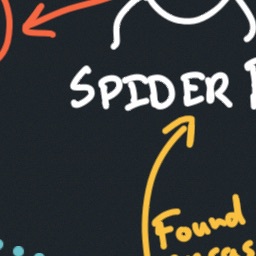 SPIDER
Found